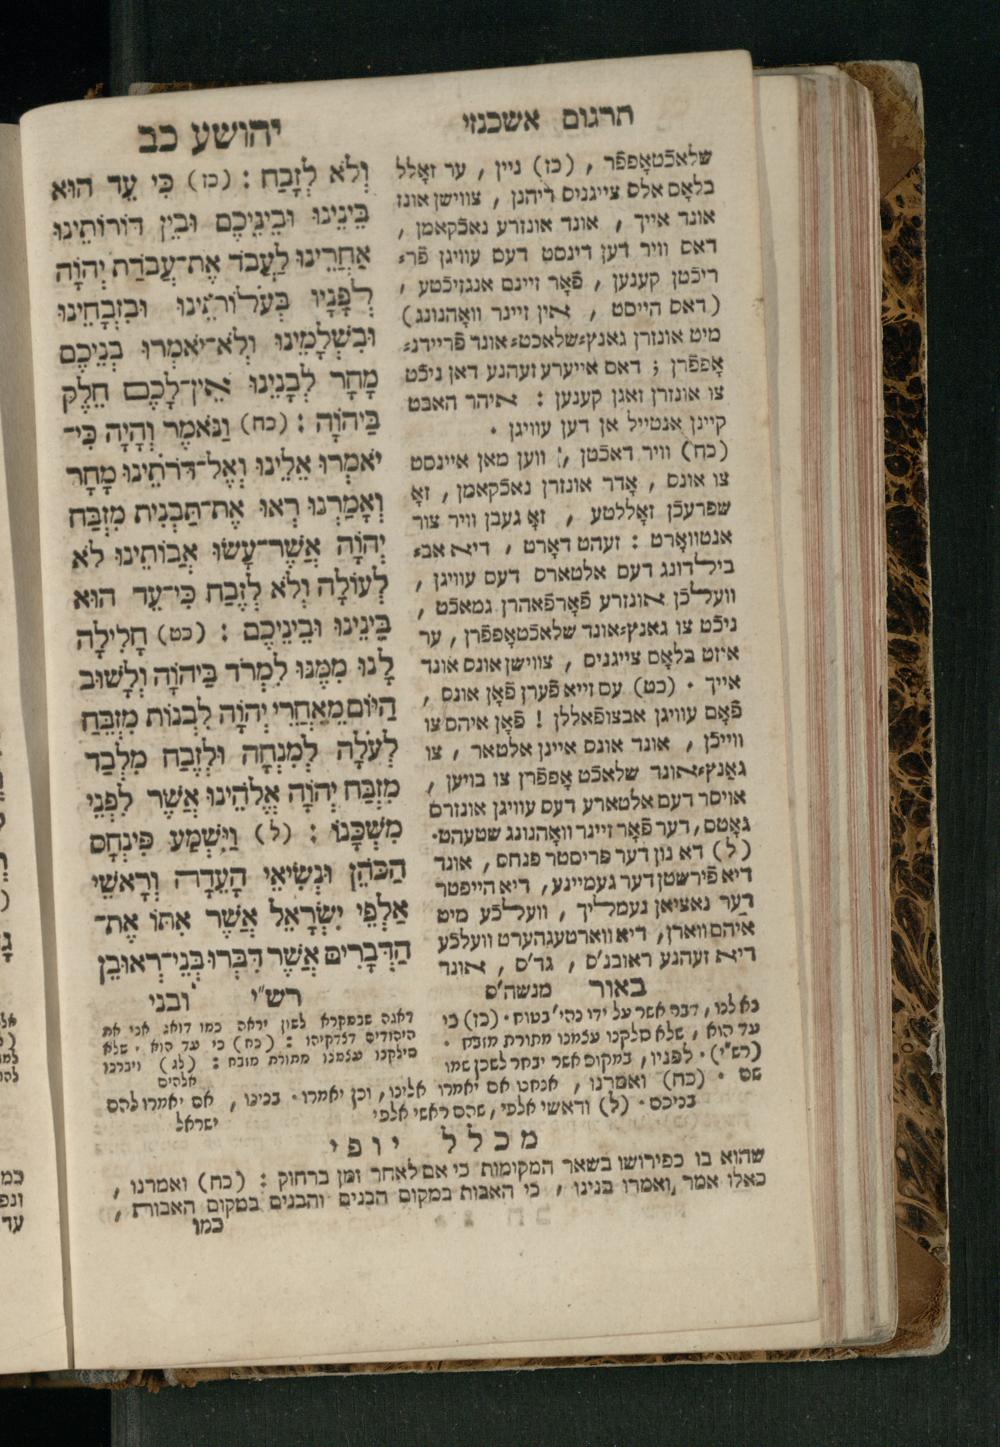 תרגום אשכנזי
יהושע כב
וְלֹא לְזָבַח : (כז) כִּי עֵד הוּא
בֵּינֵינוּ וּבֵינֵיכֶם וּבֵין דּוֹרוֹתֵינוּ
אַחֲרֵינוּ לַעֲבֹד אֶת־עֲבֹדַת יְהוָֹה
לְפָנָיו בְּעֹלוֹתֵינוּ וּבִזְבָחֵינוּ
וּבִשְׁלָמֵינוּ וְלֹא־יֹאמְרוּ בְנֵיכֶם
מָחָר לְבָנֵינוּ אֵין־לָכֶם חֵלֶק
בַּיהוָֹה : (כח) וַנֹּאמֶר וְהָיָה כִּי־
יֹאמְרוּ אֵלֵינוּ וְאֶל־דֹּרֹתֵינוּ מָחָר
וְאָמַרְנוּ רְאוּ אֶת־תַּבְנִית מִזְבַּח
יְהוָֹה אֲשֶׁר־עָשׂוּ אֲבוֹתֵינוּ לֹא
לְעוֹלָה וְלֹא לְזֶבַח כִּי־עֵד הוּא
בֵּינֵינוּ וּבֵינֵיכֶם : (כט) חָלִילָה
לָּנוּ מִמֶּנּוּ לִמְרֹד בַּיהוָֹה וְלָשׁוּב
הַיּוֹם מֵאַחֲרֵי יְהוָֹה לִבְנוֹת מִזְבֵּחַ
לְעֹלָה לְמִנְחָה וּלְזָבַח מִלְּבַד
מִזְבַּח יְהוָֹה אֱלֹהֵינוּ אֲשֶׁר לִפְנֵי
מִשְׁכָּנוֹ : (ל) וַיִּשְׁמַע פִּינְחָס
הַכֹּהֵן וּנְשִׂיאֵי הָעֵדָה וְרָאשֵׁי
אַלְפֵי יִשְׂרָאֵל אֲשֶׁר אִתּוֹ אֶת־
הַדְּבָרִים אֲשֶׁר דִּבְּרוּ בְּנֵי־רְאוּבֵן
ובני
שלאכֿטאָפּפֿר , (כז) ניין , ער זאָלל
בלאָס אלס צייגניס דיהנן , צווישן אונז
אונד אייך , אונד אונזרע נאכֿקאמן ,
דאס וויר דען דינסט דעם עוויגן פֿר⸗
ריכֿטן קענען , פֿאָר זיינם אנגזיכֿטע ,
(דאס הייסט , אין זיינר וואָהנונג)
מיט אונזרן גאנץ⸗שלאכט⸗ אונד פֿריידנ⸗
אָפּפֿרן ; דאס אייערע זעהנע דאן ניכֿט
צו אונזרן זאגן קענען : איהר האבט
קיינן אנטייל אן דען עוויגן .
(כח) וויר דאכֿטן , ווען מאן איינסט
צו אונס , אָדר אונזרן נאכֿקאמן , זאָ
שפּרעכֿן זאָללטע , זאָ געבן וויר צור
אנטוואָרט : זעהט דאָרט , דיא אב⸗
בילדונג דעס אלטארס דעס עוויגן ,
וועלכֿן אונזרע פֿאָרפֿאהרן גמאכֿט ,
ניכֿט צו גאנץ⸗אונד שלאכֿטאָפּפֿרן , ער
איזט בלאָס צייגניס , צווישן אונס אונד
אייך . (כט) עס זייא פֿערן פֿאָן אונס ,
פֿאָם עוויגן אבצופֿאללן ! פֿאָן איהם צו
ווייכֿן , אונד אונס איינן אלטאר , צו
גאַנץ⸗אונד שלאכֿט אָפּפֿרן צו בויען ,
אויסר דעם אלטארע דעס עוויגן אונזרס
גאָטס, דער פֿאָר זיינר וואָהנונג שטעהט.
(ל) דא נון דער פריסטר פנחס , אונד
דיא פֿירשטן דער געמיינע, דיא הייפּטר
דער נאציאָן נעמליך , וועלכֿע מיט
איהם ווארן, דיא ווארטע געהערט וועלכֿע
דיא זעהנע ראובנ'ס , גד'ס , אונד
מנשה'ס
באור
כי (כז) .
עד הוא , שלא סלקנו עצמנו מתורת מזבח .
(רש"י) . לפניו , במקום אשר יבחר לשכן שמו
שם . (כח) ואמרנו , אנחנו אם יאמרו אלינו , וכן יאמרו . בנינו , אם יאמרו להם
בניכם . (ל) וראשי אלפי , שהם ראשי אלפי
ישראל
רש"י
דאגה שבמקרא לשון יראה כמו דואג אני את
היהודים דצדקיהו : (כח) כי עד הוא . שלא
סילקנו עצמנו מתורת מזבח : (לג) ויברכו
אלהים
מכלל יופי
שהוא בו כפירושו בשאר המקומות כי אם לאחר זמן ברחוק : (כח) ואמרנו ,
כאלו אמר ואמרו בנינו , כי האבות במקום הבנים והבנים במקום האבות ,
כמו